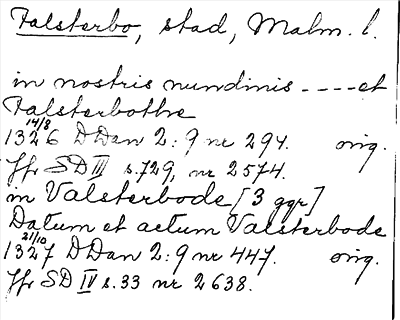 Falsterbo, stad, Malm. l.
in nostris nundinis ---- et
Falsterbothe
14/8
1326 DDan 2:9 nr 294. orig.
Jfr SD III s.729, nr 2574.
in Valsterbode [3 ggr]
Datum et actum Valsterbode
21/10
1327 DDan 2:9 nr 447. orig.
Jfr SD IV s.33 nr 2638.